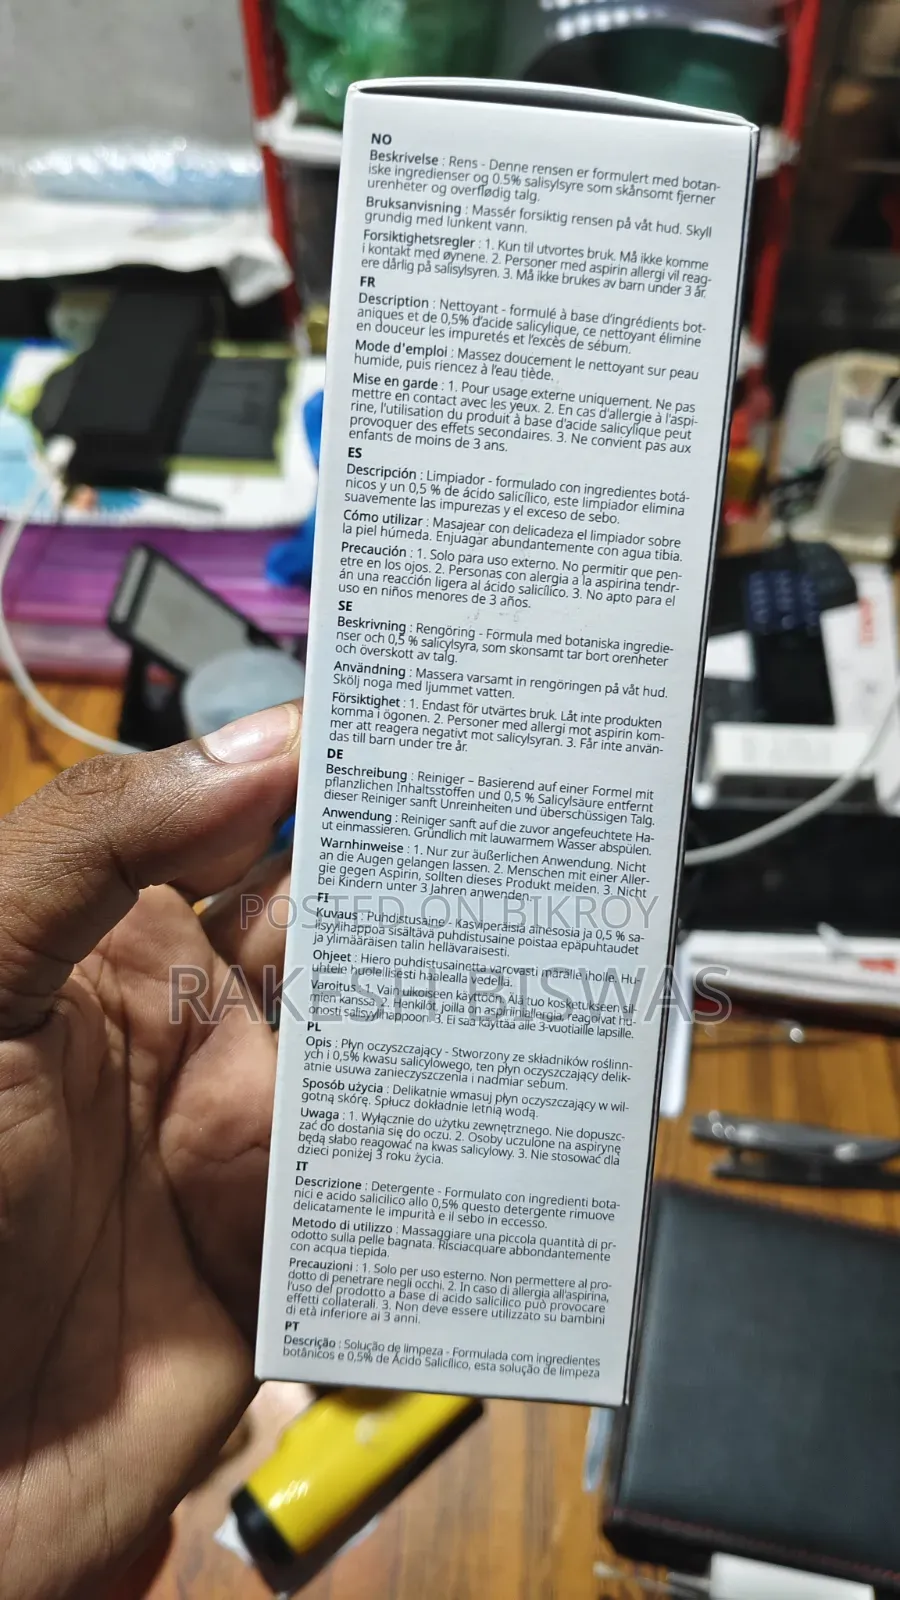 NO
Beskrivelse : Rens - Denne rensen er formulert med botan-
iske ingredienser og 0,5% salisylsyre som skånsomt fjerner
urenheter og overflødig talg.
Bruksanvisning : Massér forsiktig rensen på våt hud. Skyll
grundig med lunkent vann.
Forsiktighetsregler : 1. Kun til utvortes bruk. Må ikke komme
i kontakt med øynene. 2. Personer med aspirin allergi vil reag-
ere dårlig på salisylsyren. 3. Må ikke brukes av barn under 3 år.
FR
Description : Nettoyant - formulé à base d'ingrédients bot-
aniques et de 0,5% d'acide salicylique, ce nettoyant élimine
en douceur les impuretés et l'excès de sébum.
Mode d'emploi : Massez doucement le nettoyant sur peau
humide, puis riencez à l'eau tiède.
Mise en garde : 1. Pour usage externe uniquement. Ne pas
mettre en contact avec les yeux. 2. En cas d'allergie à l'aspi-
rine, l'utilisation du produit à base d'acide salicylique peut
provoquer des effets secondaires. 3. Ne convient pas aux
enfants de moins de 3 ans.
ES
Descripción : Limpiador - formulado con ingredientes botá-
nicos y un 0,5 % de ácido salicílico, este limpiador elimina
suavemente las impurezas y el exceso de sebo.
Cómo utilizar : Masajear con delicadeza el limpiador sobre
la piel húmeda. Enjuagar abundantemente con agua tibia.
Precaución : 1. Solo para uso externo. No permitir que pen-
etre en los ojos. 2. Personas con alergia a la aspirina tendr-
án una reacción ligera al ácido salicílico. 3. No apto para el
uso en niños menores de 3 años.
SE
Beskrivning : Rengöring - Formula med botaniska ingredie-
nser och 0,5 % salicylsyra, som skonsamt tar bort orenheter
och överskott av talg.
Användning : Massera varsamt in rengöringen på våt hud.
Skölj noga med ljummet vatten.
Försiktighet : 1. Endast för utvärtes bruk. Låt inte produkten
komma i ögonen. 2. Personer med allergi mot aspirin kom-
mer att reagera negativt mot salicylsyran. 3. Får inte använ-
das till barn under tre år.
DE
Beschreibung : Reiniger – Basierend auf einer Formel mit
pflanzlichen Inhaltsstoffen und 0,5 % Salicylsäure entfernt
dieser Reiniger sanft Unreinheiten und überschüssigen Talg.
Anwendung : Reiniger sanft auf die zuvor angefeuchtete Ha-
ut einmassieren. Gründlich mit lauwarmem Wasser abspülen.
Warnhinweise : 1. Nur zur äußerlichen Anwendung. Nicht
an die Augen gelangen lassen. 2. Menschen mit einer Aller-
gie gegen Aspirin, sollten dieses Produkt meiden. 3. Nicht
bei Kindern unter 3 Jahren anwenden.
FI
POSTED ON BIKROY
Kuvaus : Puhdistusaine - Kasviperäisiä ainesosia ja 0,5 % sa-
lisyylihappoa sisältävä puhdistusaine poistaa epäpuhtaudet
ja ylimääräisen talin hellävaraisesti.
Ohjeet : Hiero puhdistusainetta varovasti märälle iholle. Hu-
uhtele huolellisesti haalealla vedellä.
RAKESH BISWAS
Varoitus : 1. Vain ulkoiseen käyttöön. Älä tuo kosketukseen sil-
mien kanssa. 2. Henkilöt, joilla on aspiriiniallergia, reagoivat hu-
onosti salisyylihappoon. 3. Ei saa käyttää alle 3-vuotiaille lapsille.
PL
Opis : Płyn oczyszczający - Stworzony ze składników roślinn-
ych i 0,5% kwasu salicylowego, ten płyn oczyszczający delik-
atnie usuwa zanieczyszczenia i nadmiar sebum.
Sposób użycia : Delikatnie wmasuj płyn oczyszczający w wil-
gotną skórę. Spłucz dokładnie letnią wodą.
Uwaga : 1. Wyłącznie do użytku zewnętrznego. Nie dopuszc-
zać do dostania się do oczu. 2. Osoby uczulone na aspirynę
będą słabo reagować na kwas salicylowy. 3. Nie stosować dla
dzieci poniżej 3 roku życia.
IT
Descrizione : Detergente - Formulato con ingredienti bota-
nici e acido salicilico allo 0,5% questo detergente rimuove
delicatamente le impurità e il sebo in eccesso.
Metodo di utilizzo : Massaggiare una piccola quantità di pr-
odotto sulla pelle bagnata. Risciacquare abbondantemente
con acqua tiepida.
Precauzioni : 1. Solo per uso esterno. Non permettere al pro-
dotto di penetrare negli occhi. 2. In caso di allergia all'aspirina,
l'uso del prodotto a base di acido salicilico può provocare
effetti collaterali. 3. Non deve essere utilizzato su bambini
di età inferiore ai 3 anni.
PT
Descrição : Solução de limpeza - Formulada com ingredientes
botânicos e 0,5% de Ácido Salicílico, esta solução de limpeza